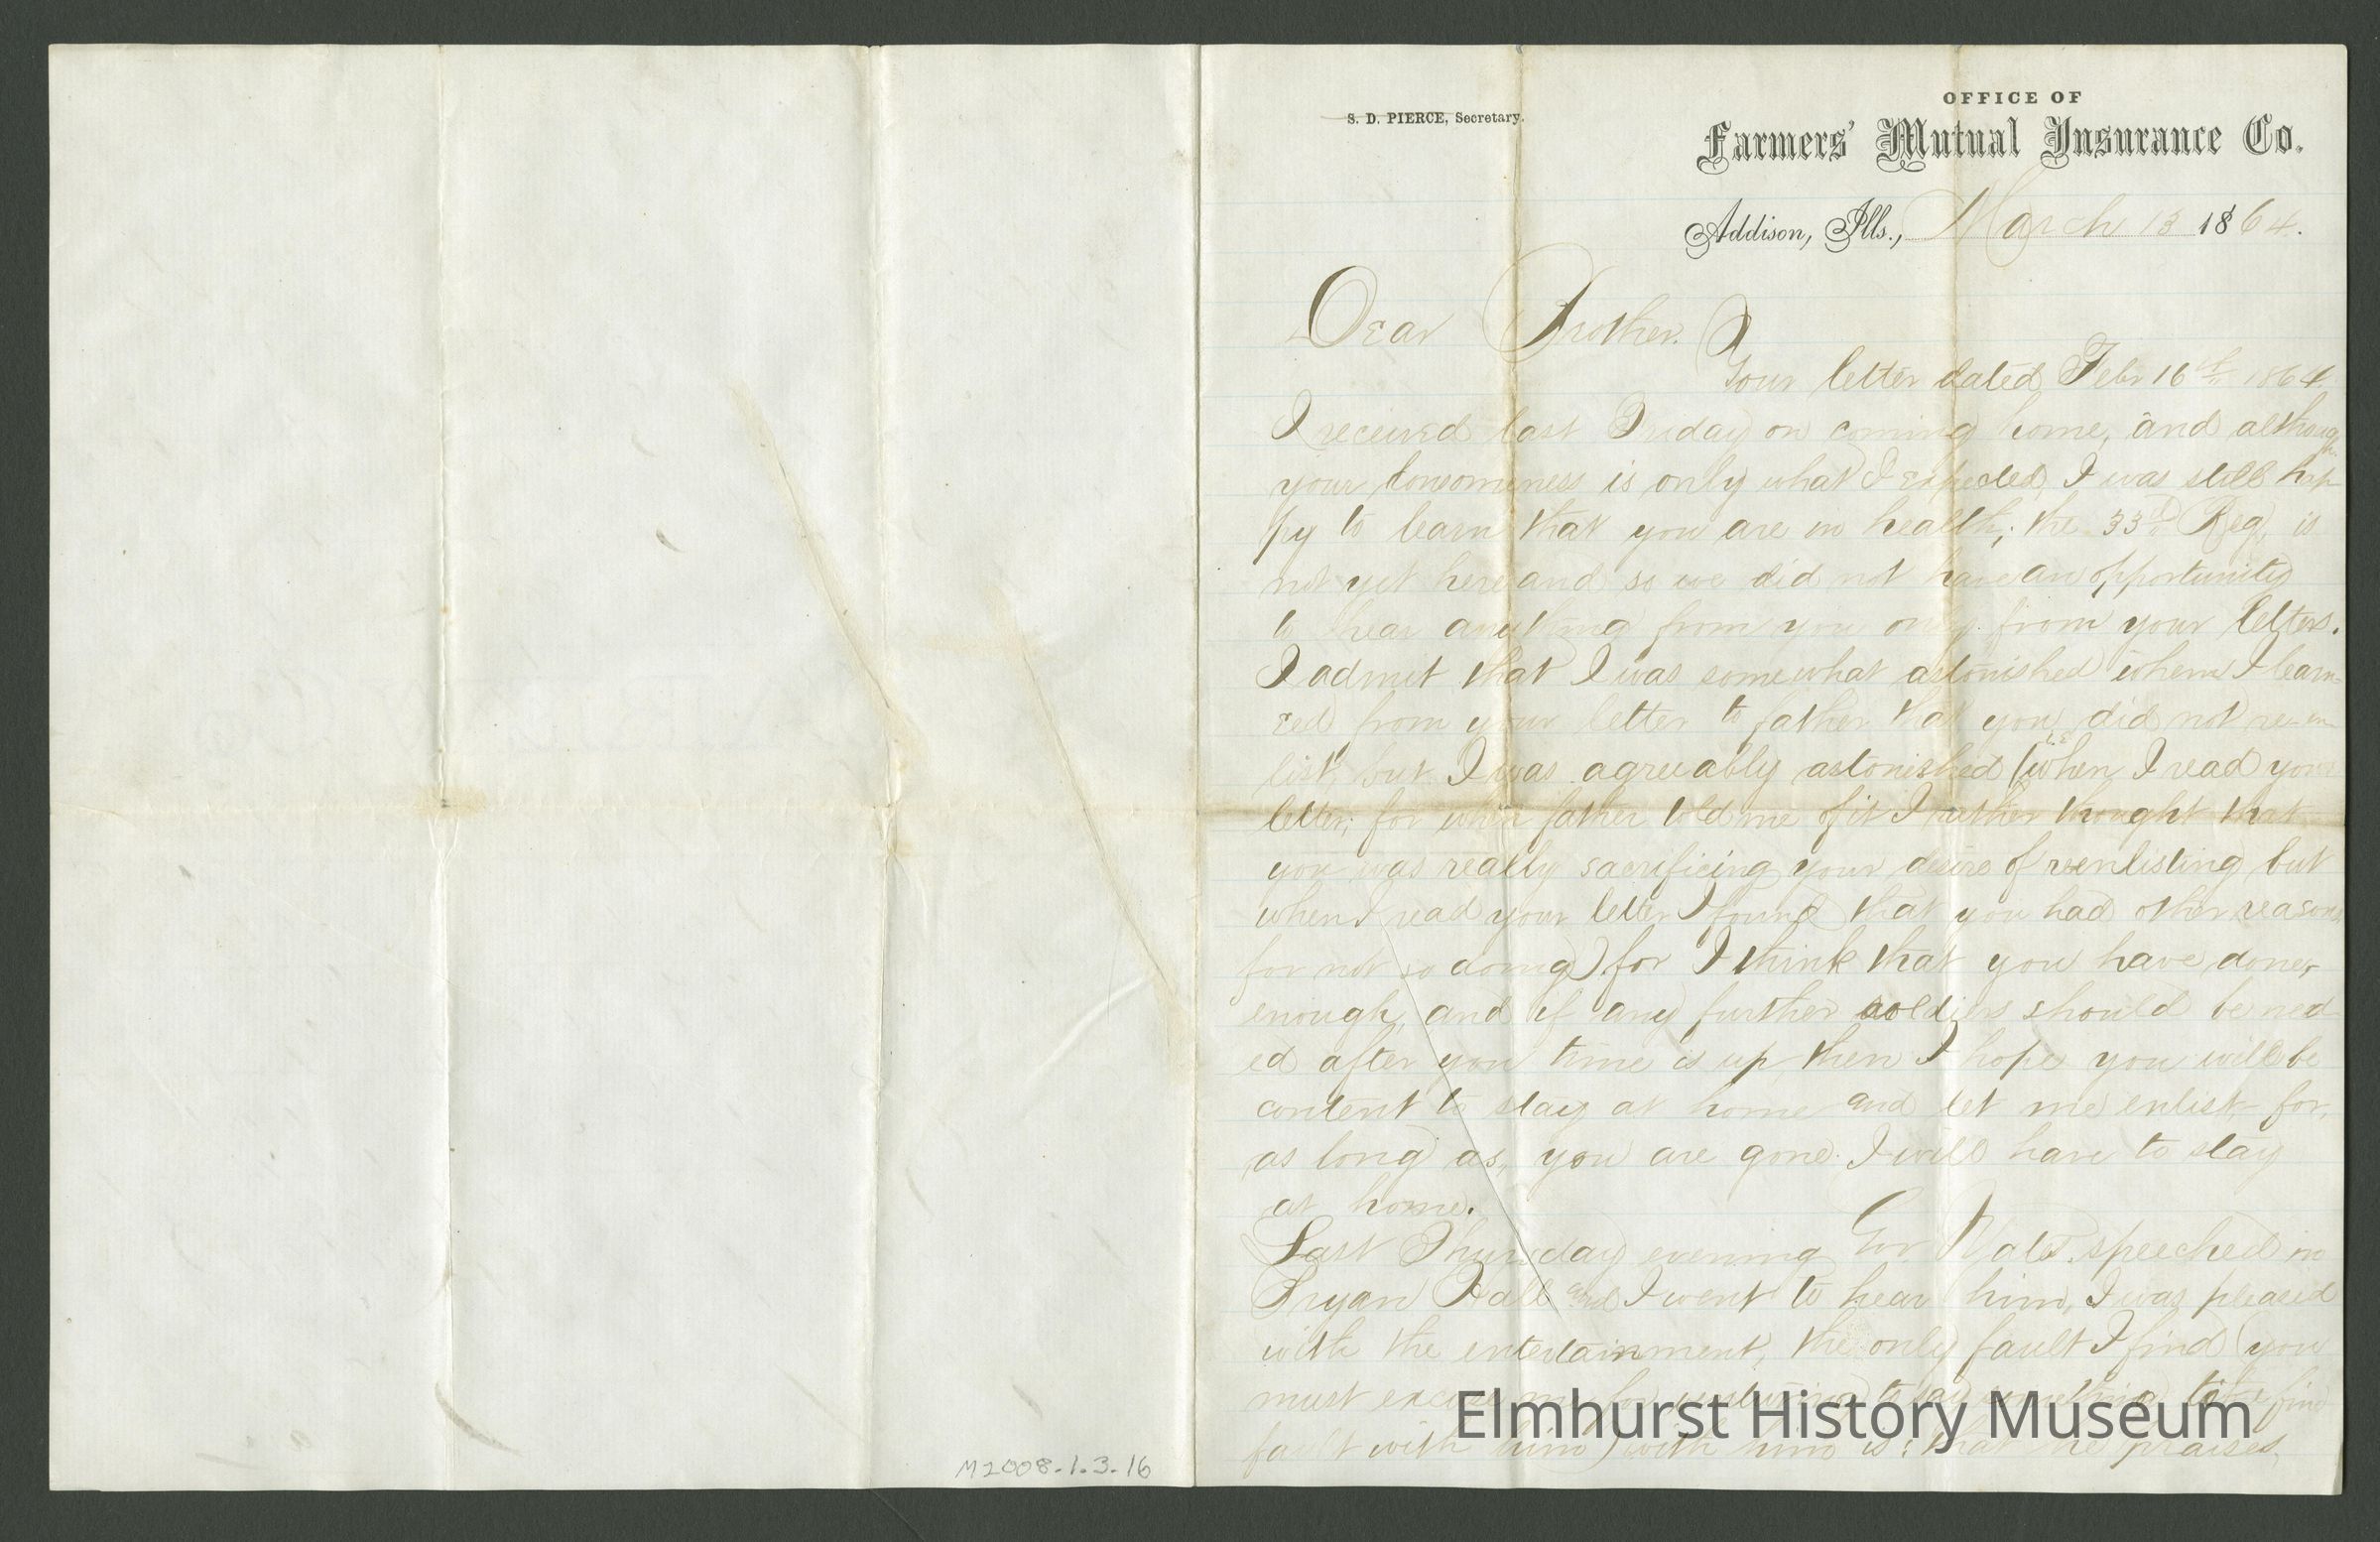 S. D. PIERCE, Secretary.
OFFICE OF
Farmers' Mutual Insurance Co.
Addison, Ills., March 13 1864.
Dear Brother.
Your letter dated Febr 16th 1864
I received last Friday on coming home, and although
your lonesomeness is only what I expected, I was still hap
py to learn that you are in health; the 33d Reg. is
not yet here and so we did not have an opportunity
to hear anything from you only from your letters.
I admit that I was somewhat astonished when I learn-
ed from your letter to father that you did not re-en
list, but I was agreeably astonished (when I read your
letter; for when father told me of it I rather thought that
you was really sacrificing your desire of reenlisting but
when I read your letter I found that you had other reasons
for not so doing) for I think that you have done
enough, and if any further soldiers should be need
ed after you time is up then I hope you will be
content to stay at home and let me enlist for,
as long as, you are gone. I will have to stay
at home.
Last Thursday evening Gov Yates. speeched in
Bryan Hall and I went to hear him, I was pleased
with the entertainment, the only fault I find (you
must excuse me for venturing to say something to find
fault with him) with him is: that he praises,
M2008.1.3.16
Elmhurst History Museum